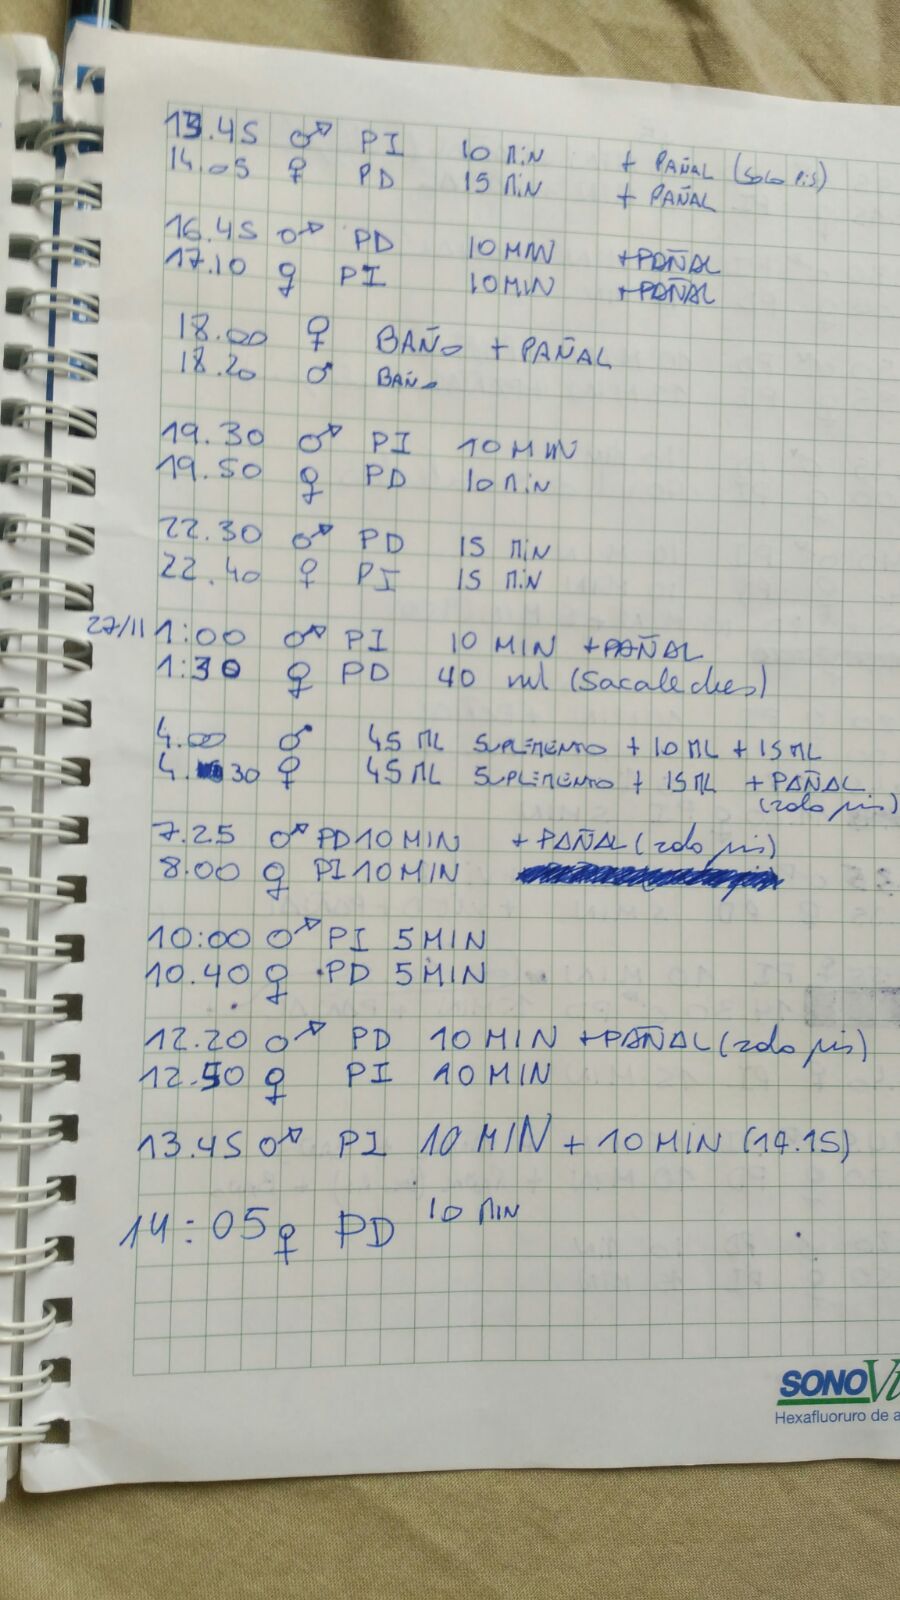 13.45 ♂ PI 10 MiN + PAÑAL (SOLO PiS)
14.05 ♀ PD 15 MiN + PAÑAL
16.45 ♂ PD 10 MIN +PAÑAL
17.10 ♀ PI 10 MIN +PAÑAL
18.00 ♀ BAÑO + PAÑAL
18.20 ♂ BAÑO
19.30 ♂ PI 10 MIN
19.50 ♀ PD 10 MiN
22.30 ♂ PD 15 MiN
22.40 ♀ PI 15 MiN
27/11 1:00 ♂ PI 10 MIN +PAÑAL
1:30 ♀ PD 40 ml (Sacaleches)
4.00 ♂ 45 ML SUPLEMENTO + 10 ML + 15 ML
4.30 ♀ 45 ML SUPLEMENTO + 15 ML + PAÑAL
(solo pis)
7.25 ♂ PD 10 MIN + PAÑAL (solo pis)
8.00 ♀ PI 10 MIN
10:00 ♂ PI 5 MIN
10.40 ♀ PD 5 MIN
12.20 ♂ PD 10 MIN +PAÑAL (solo pis)
12.50 ♀ PI 10 MIN
13.45 ♂ PI 10 MIN + 10 MIN (14.15)
14:05 ♀ PD 10 MiN
SONOVi
Hexafluoruro de a